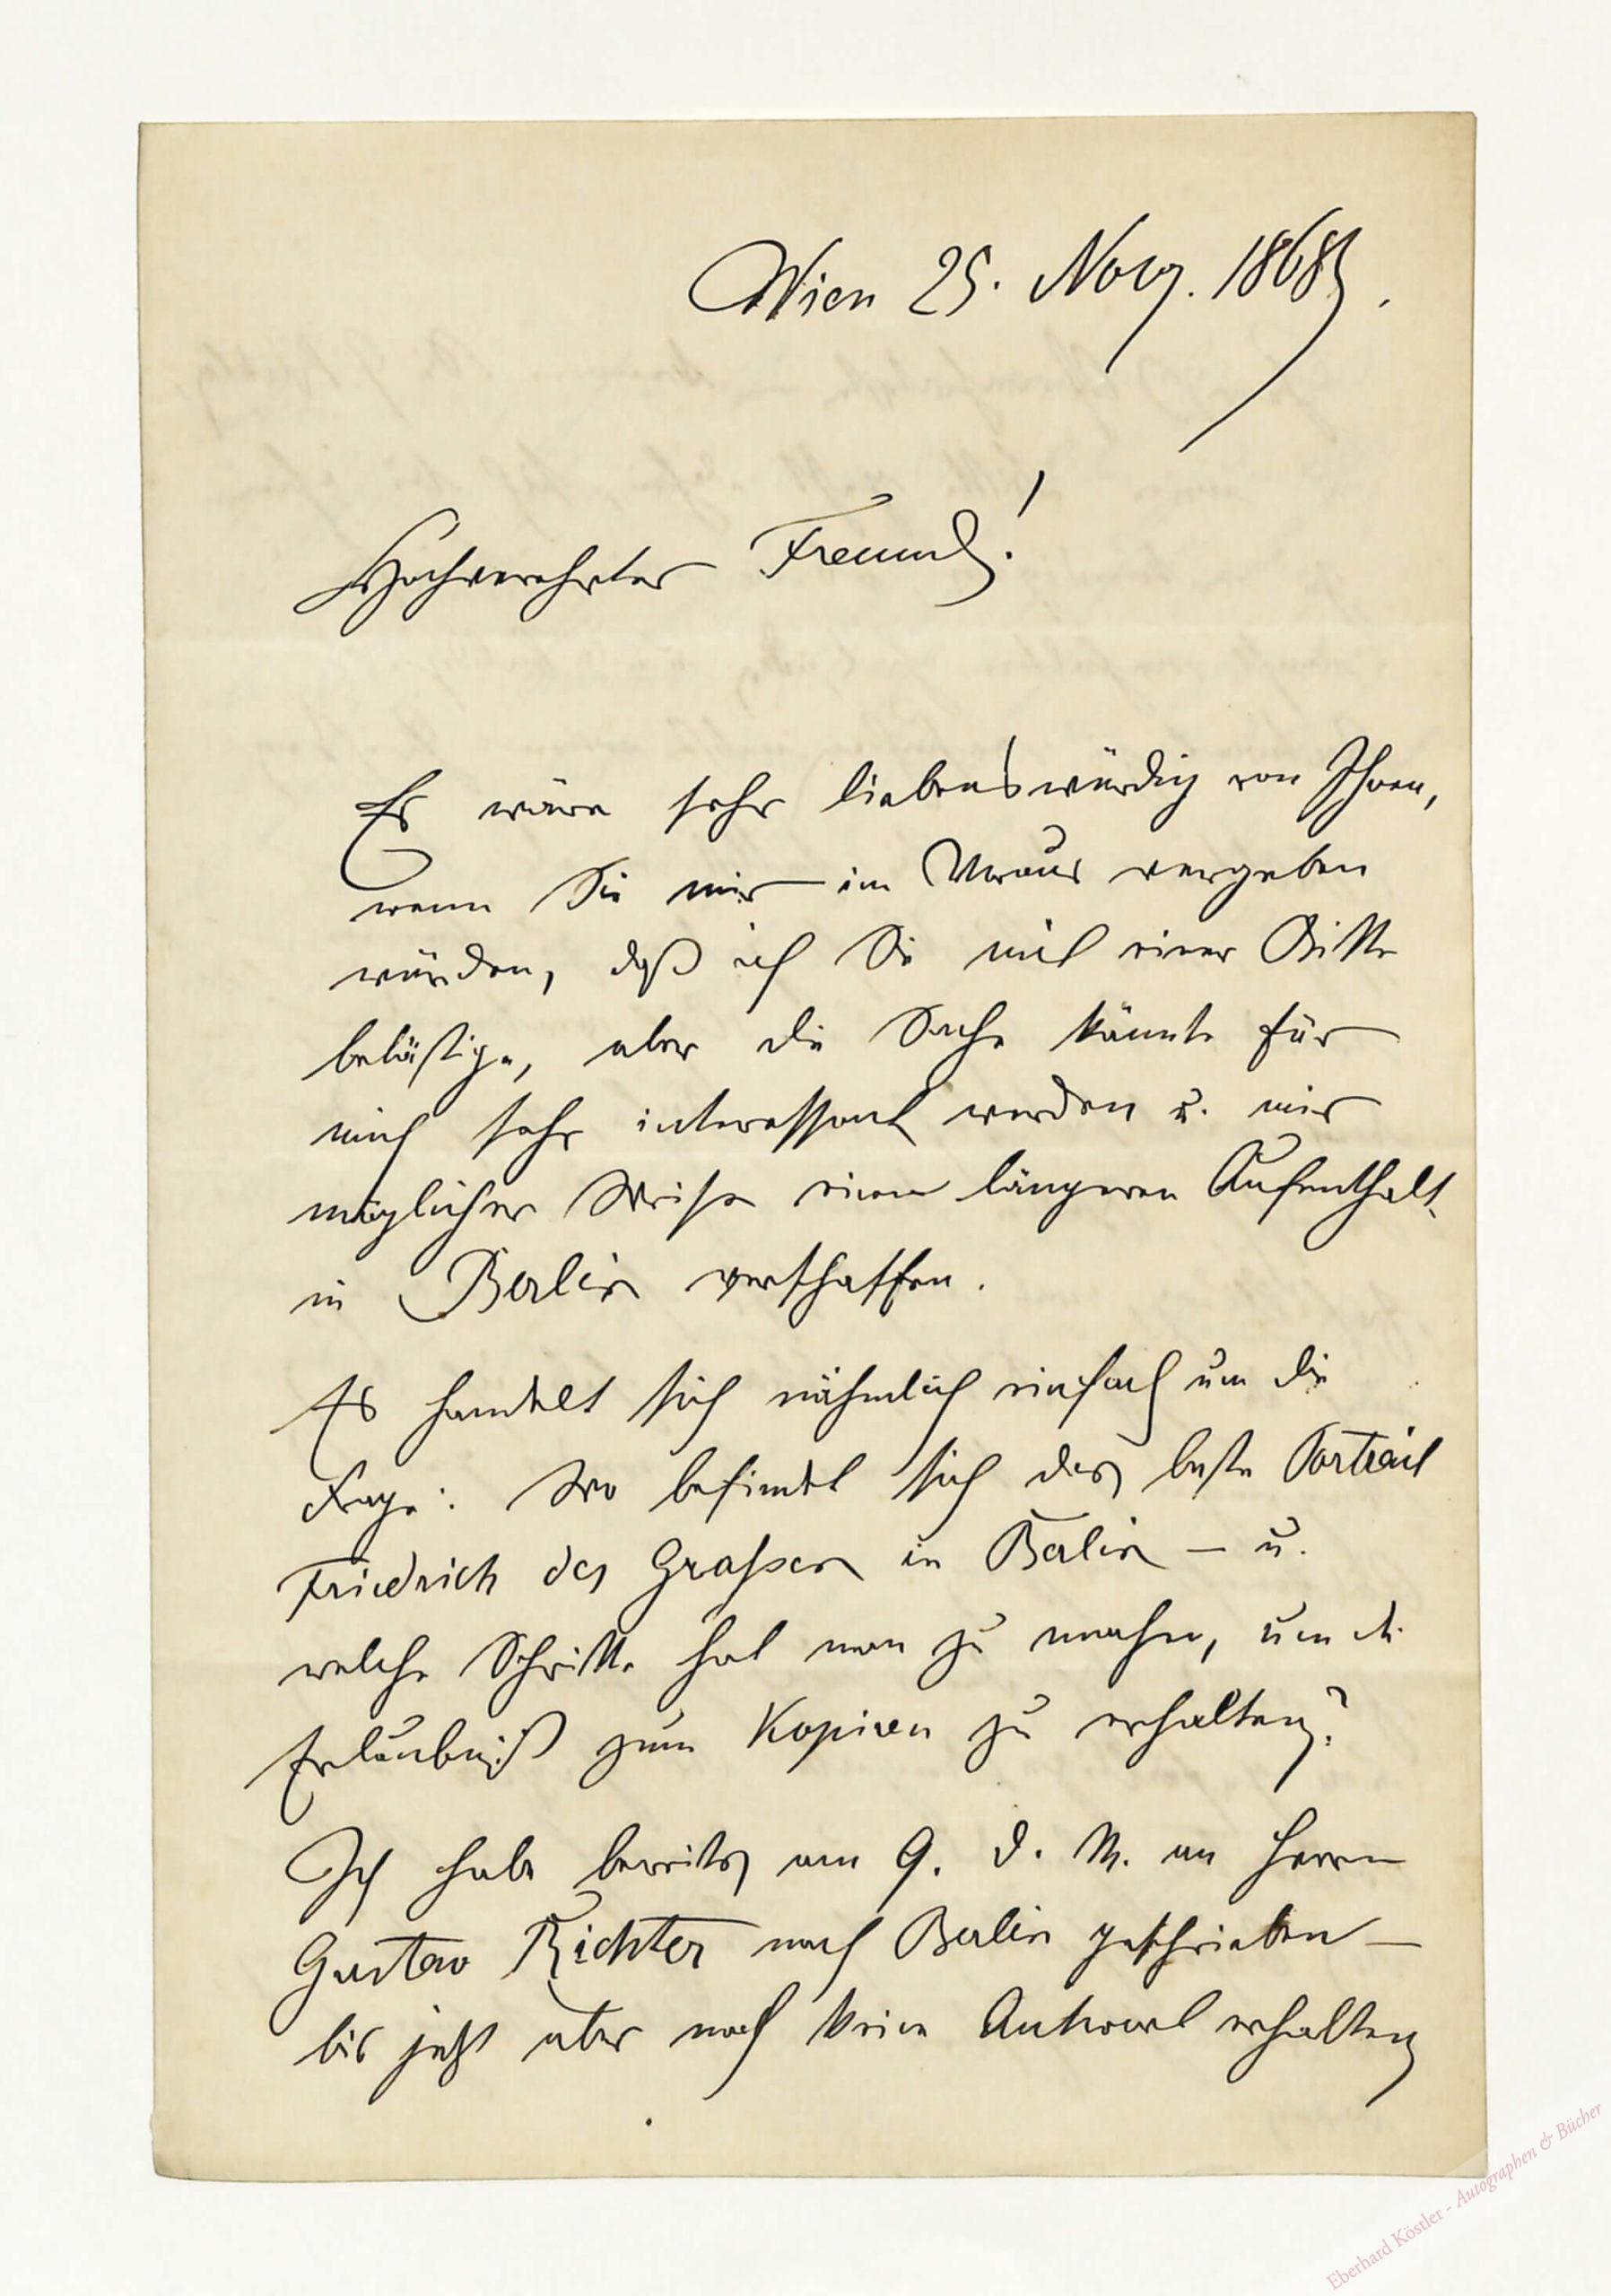 Wien 25. Novg. 1868.
Hochverehrter Freund!
Es wäre sehr liebenswürdig von Ihnen,
wenn Sie mir im Voraus vergeben
würden, daß ich Sie mit einer Bitte
belästige, aber die Sache könnte für
mich sehr interessant werden u. mir
möglicher Weise einen längeren Aufenthalt
in Berlin verschaffen.
Es handelt sich nähmlich einfach um die
Frage: Wo befindet sich das beste Portrait
Friedrich des Großen in Berlin – u.
welche Schritte hat man zu machen, um die
Erlaubniß zum Kopiren zu erhalten?
Ich habe bereits am 9. d. M. an Herrn
Gustav Richter nach Berlin geschrieben –
bis jetzt aber noch keine Antwort erhalten
Eberhard Köstler - Autographen & Bücher